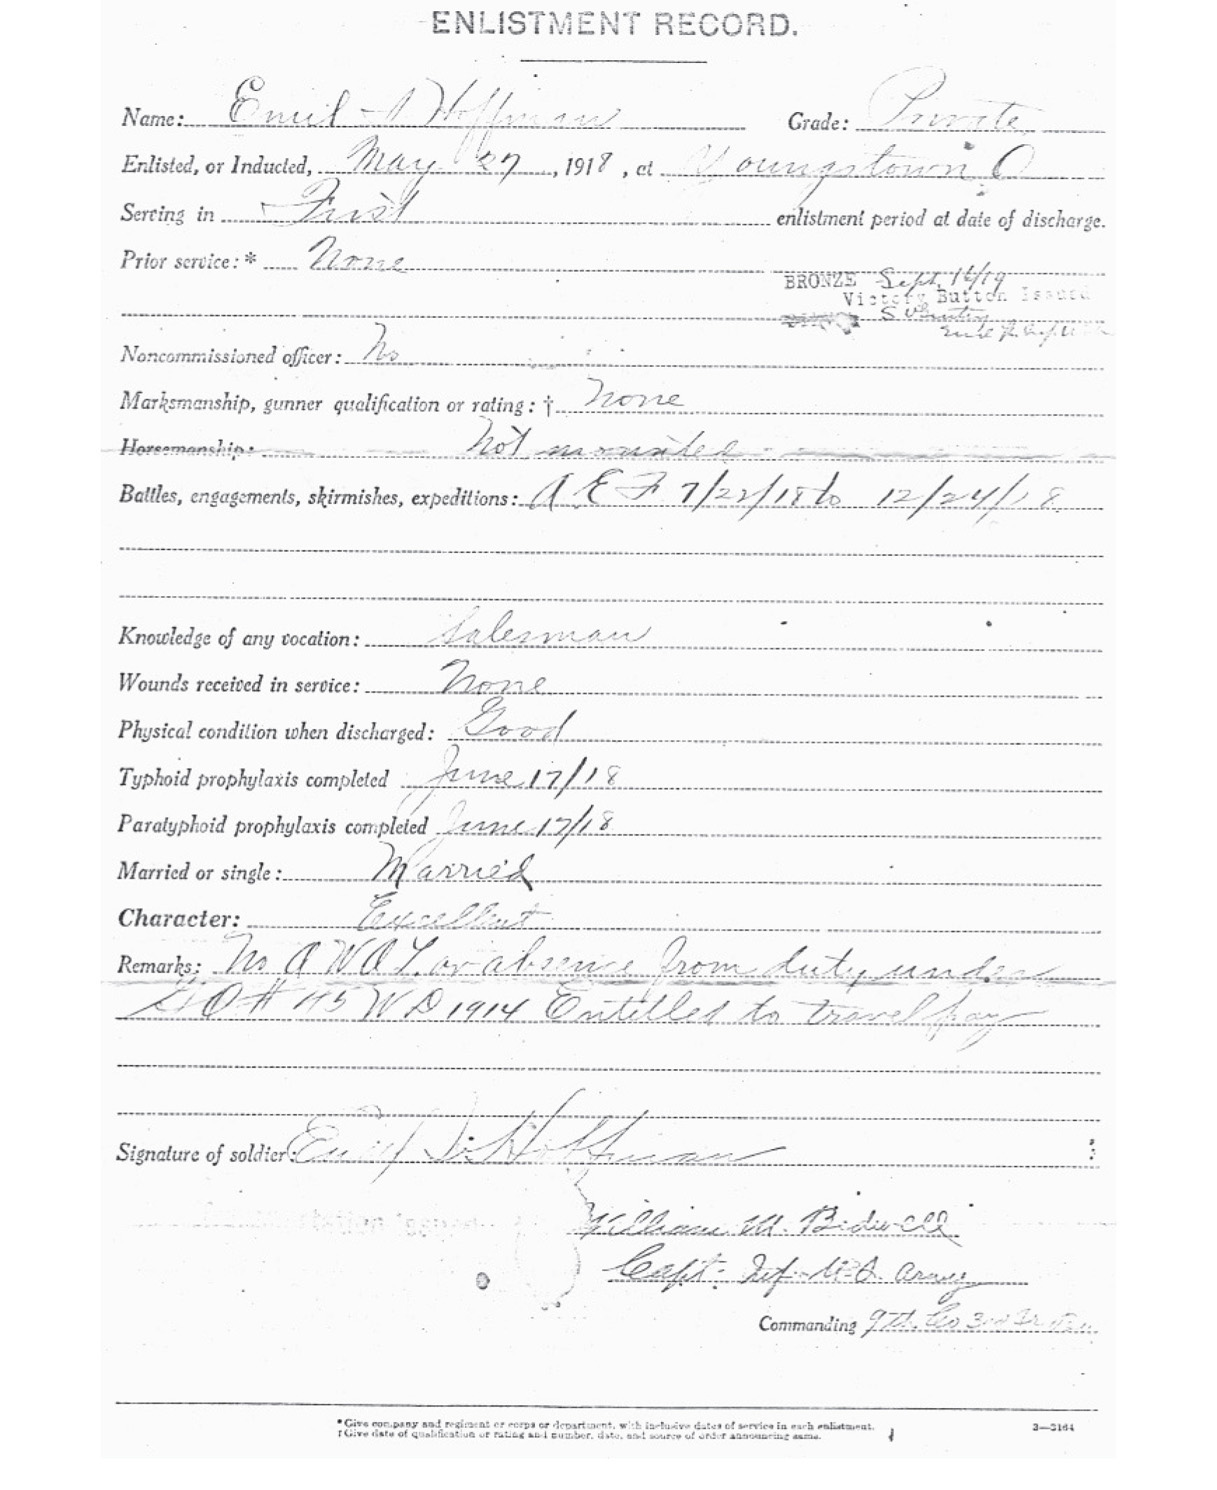 ENLISTMENT RECORD.
Name: Emil Hoffman Grade: Private
Enlisted, or Inducted, May 27, 1918, at Youngstown O
Serving in First enlistment period at date of discharge.
Prior service:* None
BRONZE Sept. 16/19
Victory Button Issued
Noncommissioned officer: No
Marksmanship, gunner qualification or rating:† None
Horsemanship: Not mounted
Battles, engagements, skirmishes, expeditions: A E F 7/22/18 to 12/24/18
Knowledge of any vocation: Salesman
Wounds received in service: None
Physical condition when discharged: Good
Typhoid prophylaxis completed June 17/18
Paratyphoid prophylaxis completed June 17/18
Married or single: Married
Character: Excellent
Remarks: No A W O L or absence from duty under
G O # 45 W D 1914 Entitled to travel pay
Signature of soldier: Emil Hoffman
William M. Bidwell
Capt. Inf. U.S. Army
Commanding 9th Co 3rd
*Give company and regiment or corps or department, with inclusive dates of service in each enlistment.
†Give date of qualification or rating and number, date, and source of order announcing same.
3—3164